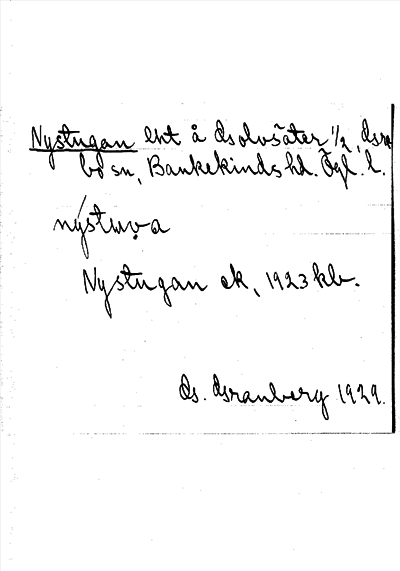 Nystugan lht å Golvsäter 1/2, Gre
bo sn, Bankekinds hd. Ögl. l.
nýstuụa
Nystugan ek, 1923 kb.
G. Granberg 1929.